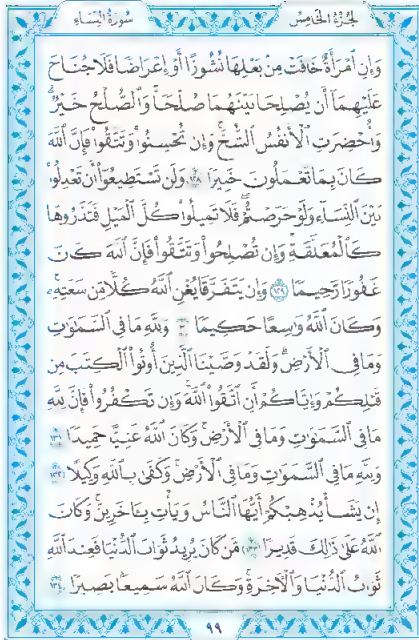 سُورَةُ النِّسَاءِ الجُزْءُ الْخَامِسُ
وَإِنِ ٱمْرَأَةٌ خَافَتْ مِنۢ بَعْلِهَا نُشُوزًا أَوْ إِعْرَاضًا فَلَا جُنَاحَ
عَلَيْهِمَآ أَن يُصْلِحَا بَيْنَهُمَا صُلْحًا ۚ وَٱلصُّلْحُ خَيْرٌ ۗ
وَأُحْضِرَتِ ٱلْأَنفُسُ ٱلشُّحَّ ۚ وَإِن تُحْسِنُوا۟ وَتَتَّقُوا۟ فَإِنَّ ٱللَّهَ
كَانَ بِمَا تَعْمَلُونَ خَبِيرًا ١٢٨ وَلَن تَسْتَطِيعُوٓا۟ أَن تَعْدِلُوا۟
بَيْنَ ٱلنِّسَآءِ وَلَوْ حَرَصْتُمْ ۖ فَلَا تَمِيلُوا۟ كُلَّ ٱلْمَيْلِ فَتَذَرُوهَا
كَٱلْمُعَلَّقَةِ ۚ وَإِن تُصْلِحُوا۟ وَتَتَّقُوا۟ فَإِنَّ ٱللَّهَ كَانَ
غَفُورًا رَّحِيمًا ١٢٩ وَإِن يَتَفَرَّقَا يُغْنِ ٱللَّهُ كُلًّا مِّن سَعَتِهِۦ ۚ
وَكَانَ ٱللَّهُ وَٰسِعًا حَكِيمًا ١٣٠ وَلِلَّهِ مَا فِى ٱلسَّمَٰوَٰتِ
وَمَا فِى ٱلْأَرْضِ ۗ وَلَقَدْ وَصَّيْنَا ٱلَّذِينَ أُوتُوا۟ ٱلْكِتَٰبَ مِن
قَبْلِكُمْ وَإِيَّاكُمْ أَنِ ٱتَّقُوا۟ ٱللَّهَ ۚ وَإِن تَكْفُرُوا۟ فَإِنَّ لِلَّهِ
مَا فِى ٱلسَّمَٰوَٰتِ وَمَا فِى ٱلْأَرْضِ ۚ وَكَانَ ٱللَّهُ غَنِيًّا حَمِيدًا ١٣١
وَلِلَّهِ مَا فِى ٱلسَّمَٰوَٰتِ وَمَا فِى ٱلْأَرْضِ ۚ وَكَفَىٰ بِٱللَّهِ وَكِيلًا ١٣٢
إِن يَشَأْ يُذْهِبْكُمْ أَيُّهَا ٱلنَّاسُ وَيَأْتِ بِـَٔاخَرِينَ ۚ وَكَانَ
ٱللَّهُ عَلَىٰ ذَٰلِكَ قَدِيرًا ١٣٣ مَّن كَانَ يُرِيدُ ثَوَابَ ٱلدُّنْيَا فَعِندَ ٱللَّهِ
ثَوَابُ ٱلدُّنْيَا وَٱلْـَٔاخِرَةِ ۚ وَكَانَ ٱللَّهُ سَمِيعًۢا بَصِيرًا ١٣٤
٩٩